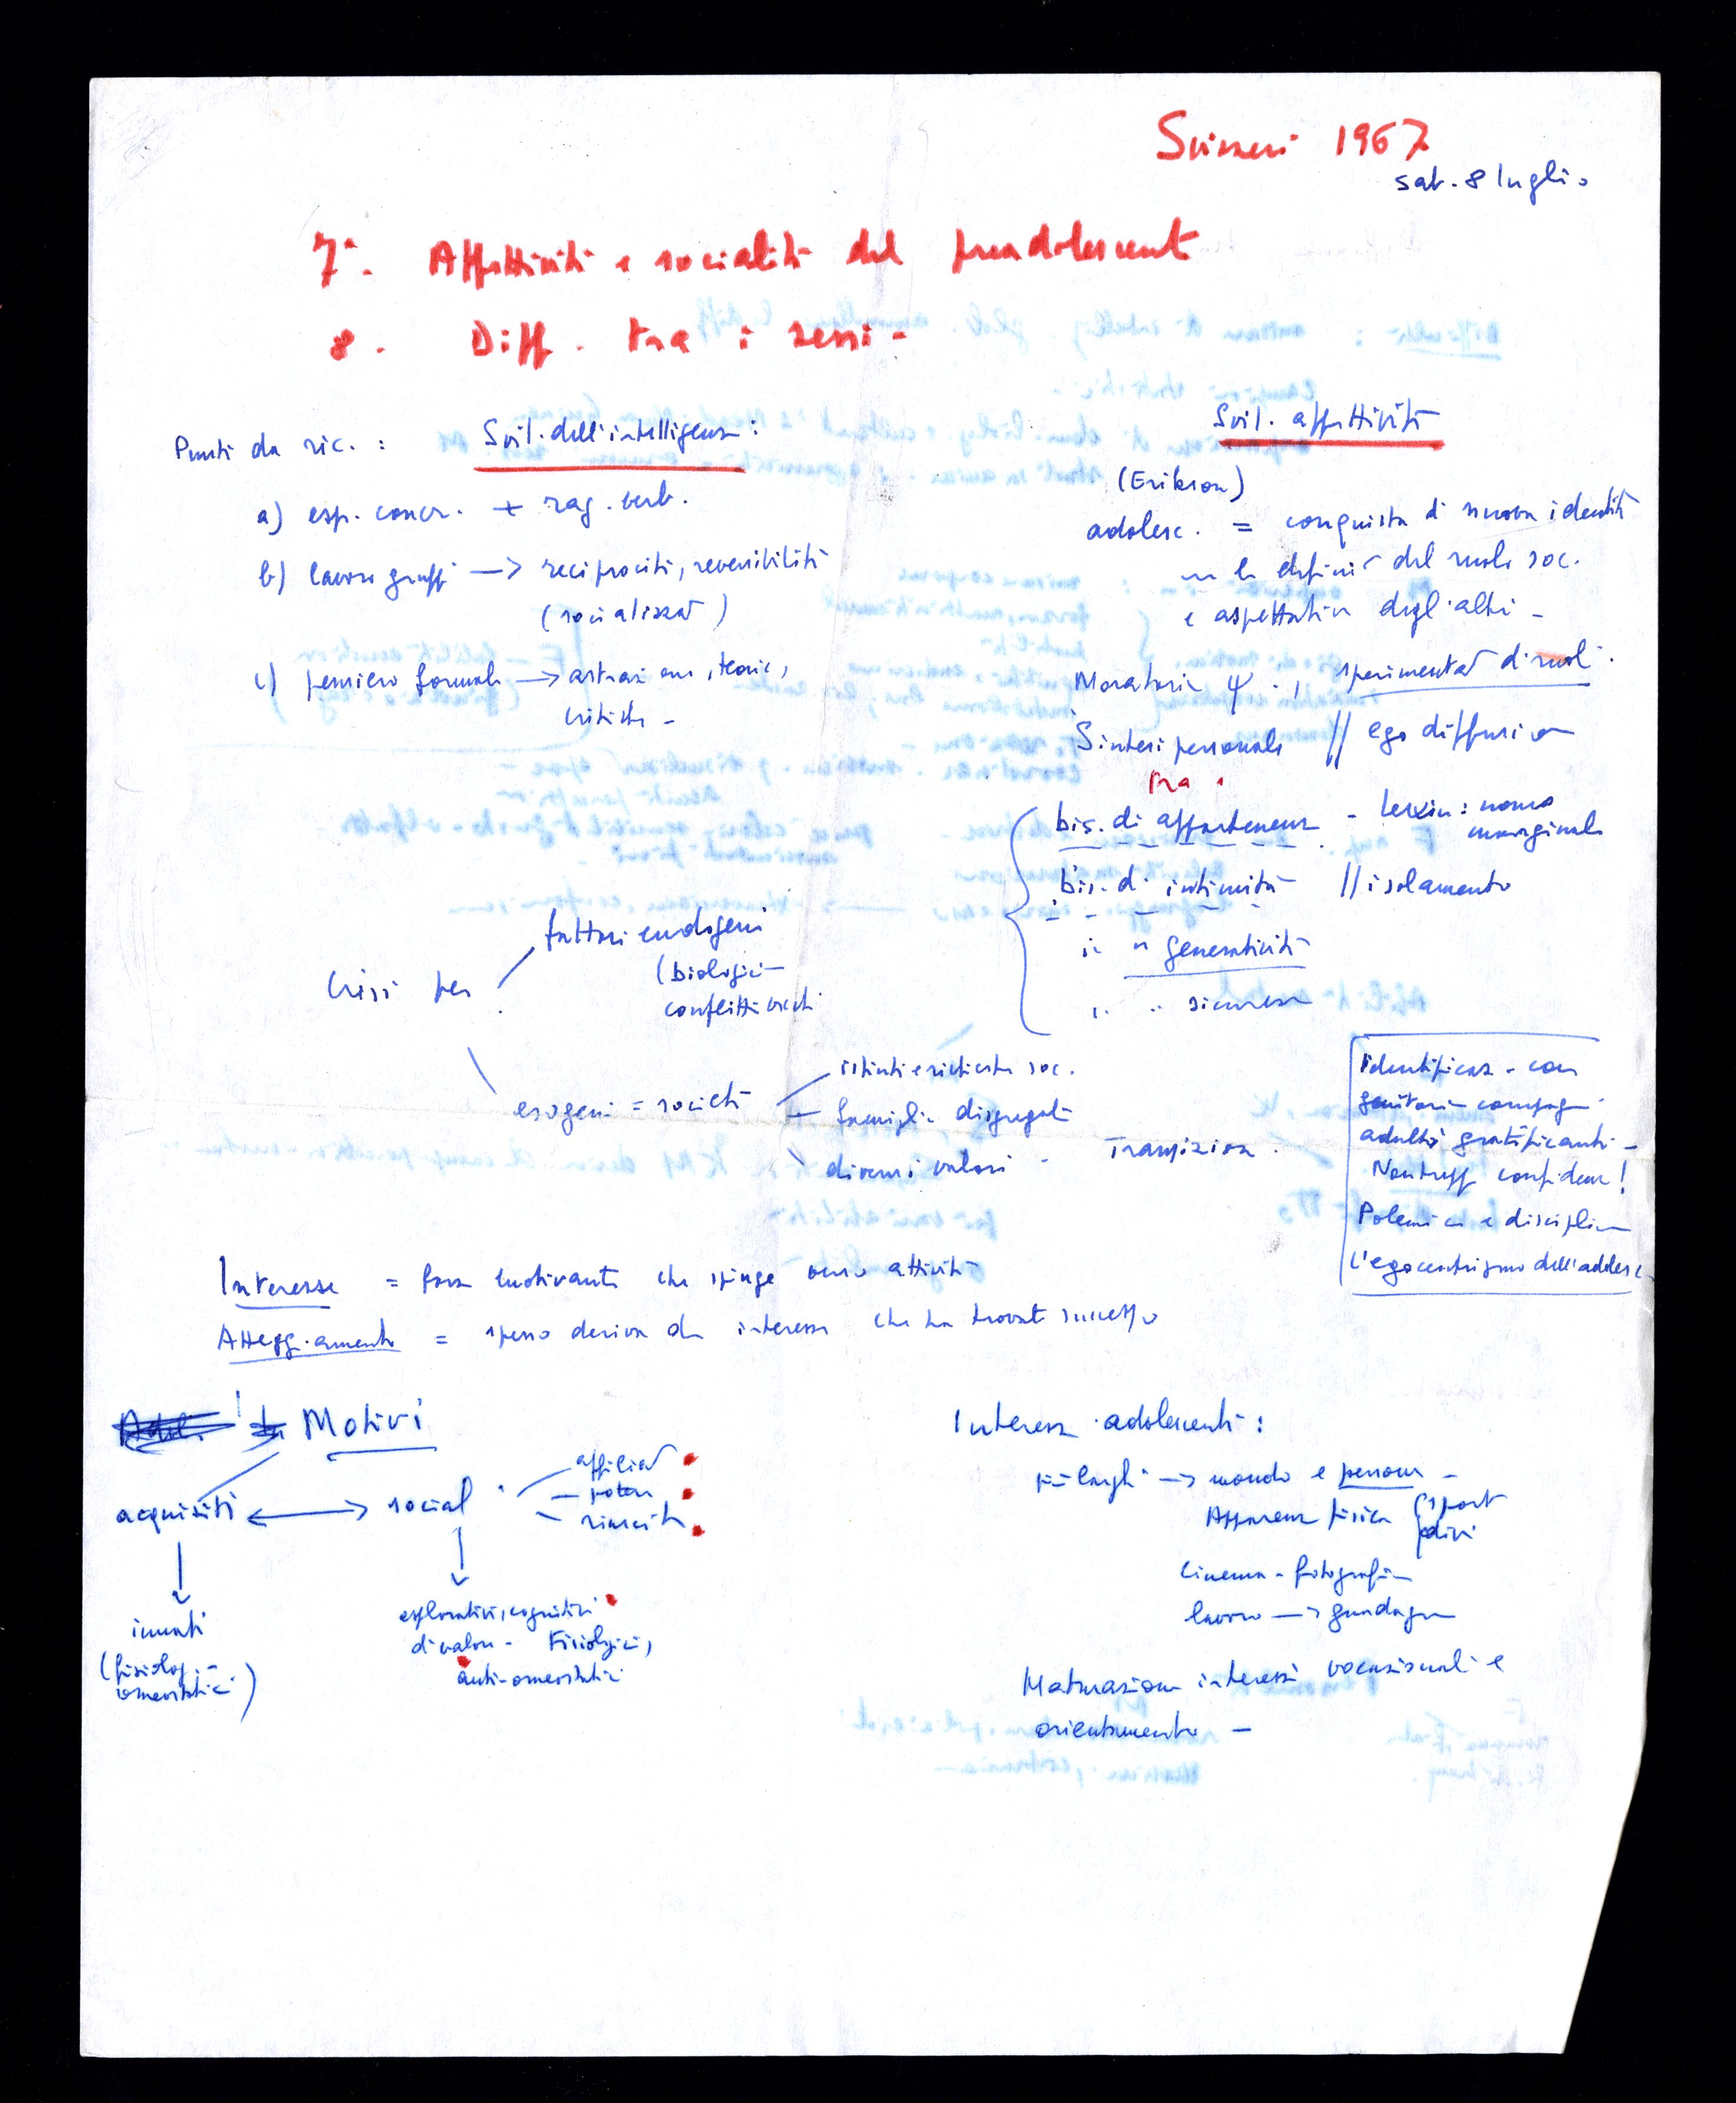 1967
sab. 8 luglio
7ª. Affettività e socialità del preadolescente
8. Diff. tra i sessi -
Punti da ric. : Svil. dell'intelligenza :
a) esp. concr. + rag. verb.
b) lavoro gruppo → reciprocità, reversibilità
(socializzaz)
c) pensiero formale → astrazione, teorie,
critiche -
Svil. affettività
(Erikson)
adolesc. = conquista di nuova identità
definiz del ruolo soc.
e aspettative degli altri -
Moratoria ψ., sperimentaz di ruoli.
Sintesi personale // ego diffusion
tra i
bis. di appartenenza - Lewin : uomo
marginale
bis. di intimità // isolamento
" " generatività
" " sicurezza
Crisi per
fattori endogeni
(biologici -
conflitti vecchi
esogeni = società
istinti e richieste soc.
famiglia disgregata
diversi valori - Transizione.
Identificaz. con
genitori - compagni -
adulti gratificanti -
confidenza!
Polemica e disciplina
L'egocentrismo dell'adolesc.
Interesse = forza motivante che spinge verso attività
Atteggiamento = spesso deriva da interesse che ha trovato successo
Motivi
acquisiti ↔ social
affiliaz
potere
riuscita
innati
(fisiologi -
omeostatici)
esplorativi, cognitivi
di valore - Fisiologici,
anti-omeostatici
Interessi adolescenti :
più larghi → mondo e persone -
Apparenza fisica (sport
divi
cinema - fotografia
lavoro → guadagno
Maturazione interessi vocazionali e
orientamento -